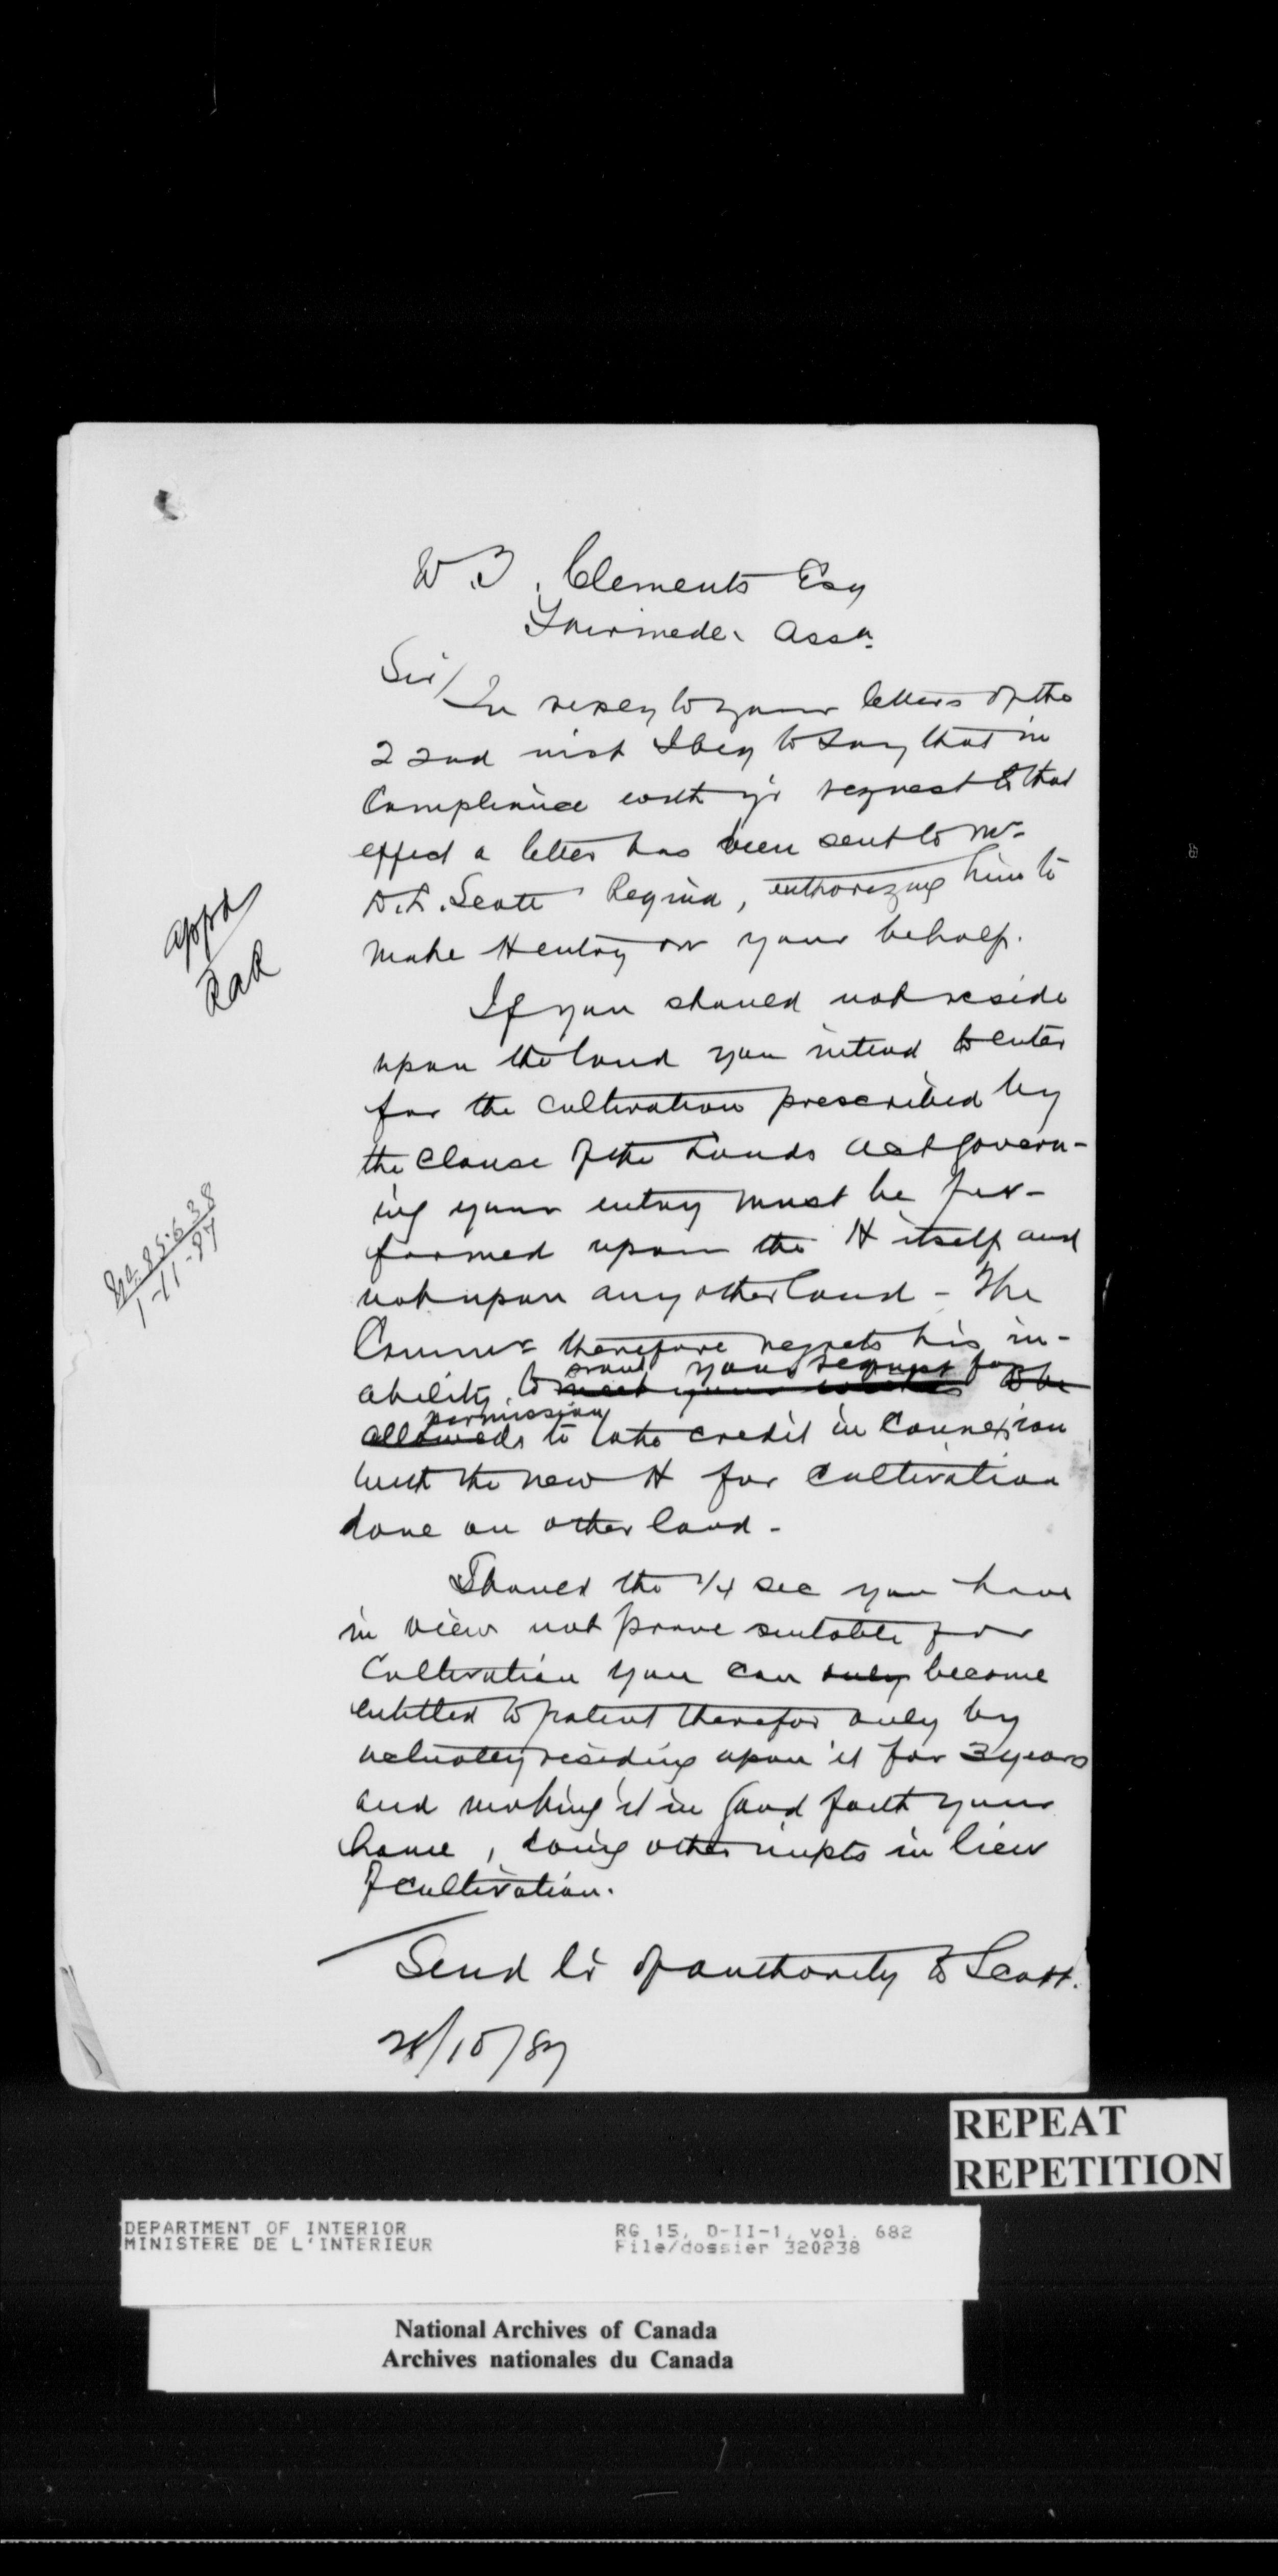 W. B. Clements Esq
Fairmede. Assa.
Sir/ In reply to your letters of the
22nd inst I beg to say that in
Compliance with yr request to that
effect a letter has been sent to Mr
D. L. Scott Regina, authorizing him to
make H entry on your behalf.
If you should not reside
upon the land you intend to enter
for the cultivation prescribed by
the Clause of the Lands Act govern-
ing your entry must be per-
formed upon the H itself and
not upon any other land - The
Commr therefore regrets his in-
ability to grant your request for
permission to take credit in Connexion
with the new H for Cultivation
done on other land -
Should the 1/4 sec you have
in view not prove suitable for
Cultivation you can only become
entitled to patent therefor only by
actually residing upon it for 3 years
and making it in good faith your
home, doing other impts in lieu
of cultivation.
Send Lr of authority to Scott.
28/10/87
appd
RaR
No. 85638
1-11-87
REPEAT
REPETITION
DEPARTMENT OF INTERIOR
MINISTERE DE L'INTERIEUR
RG 15, D-II-1, vol. 682
File/dossier 320238
National Archives of Canada
Archives nationales du Canada